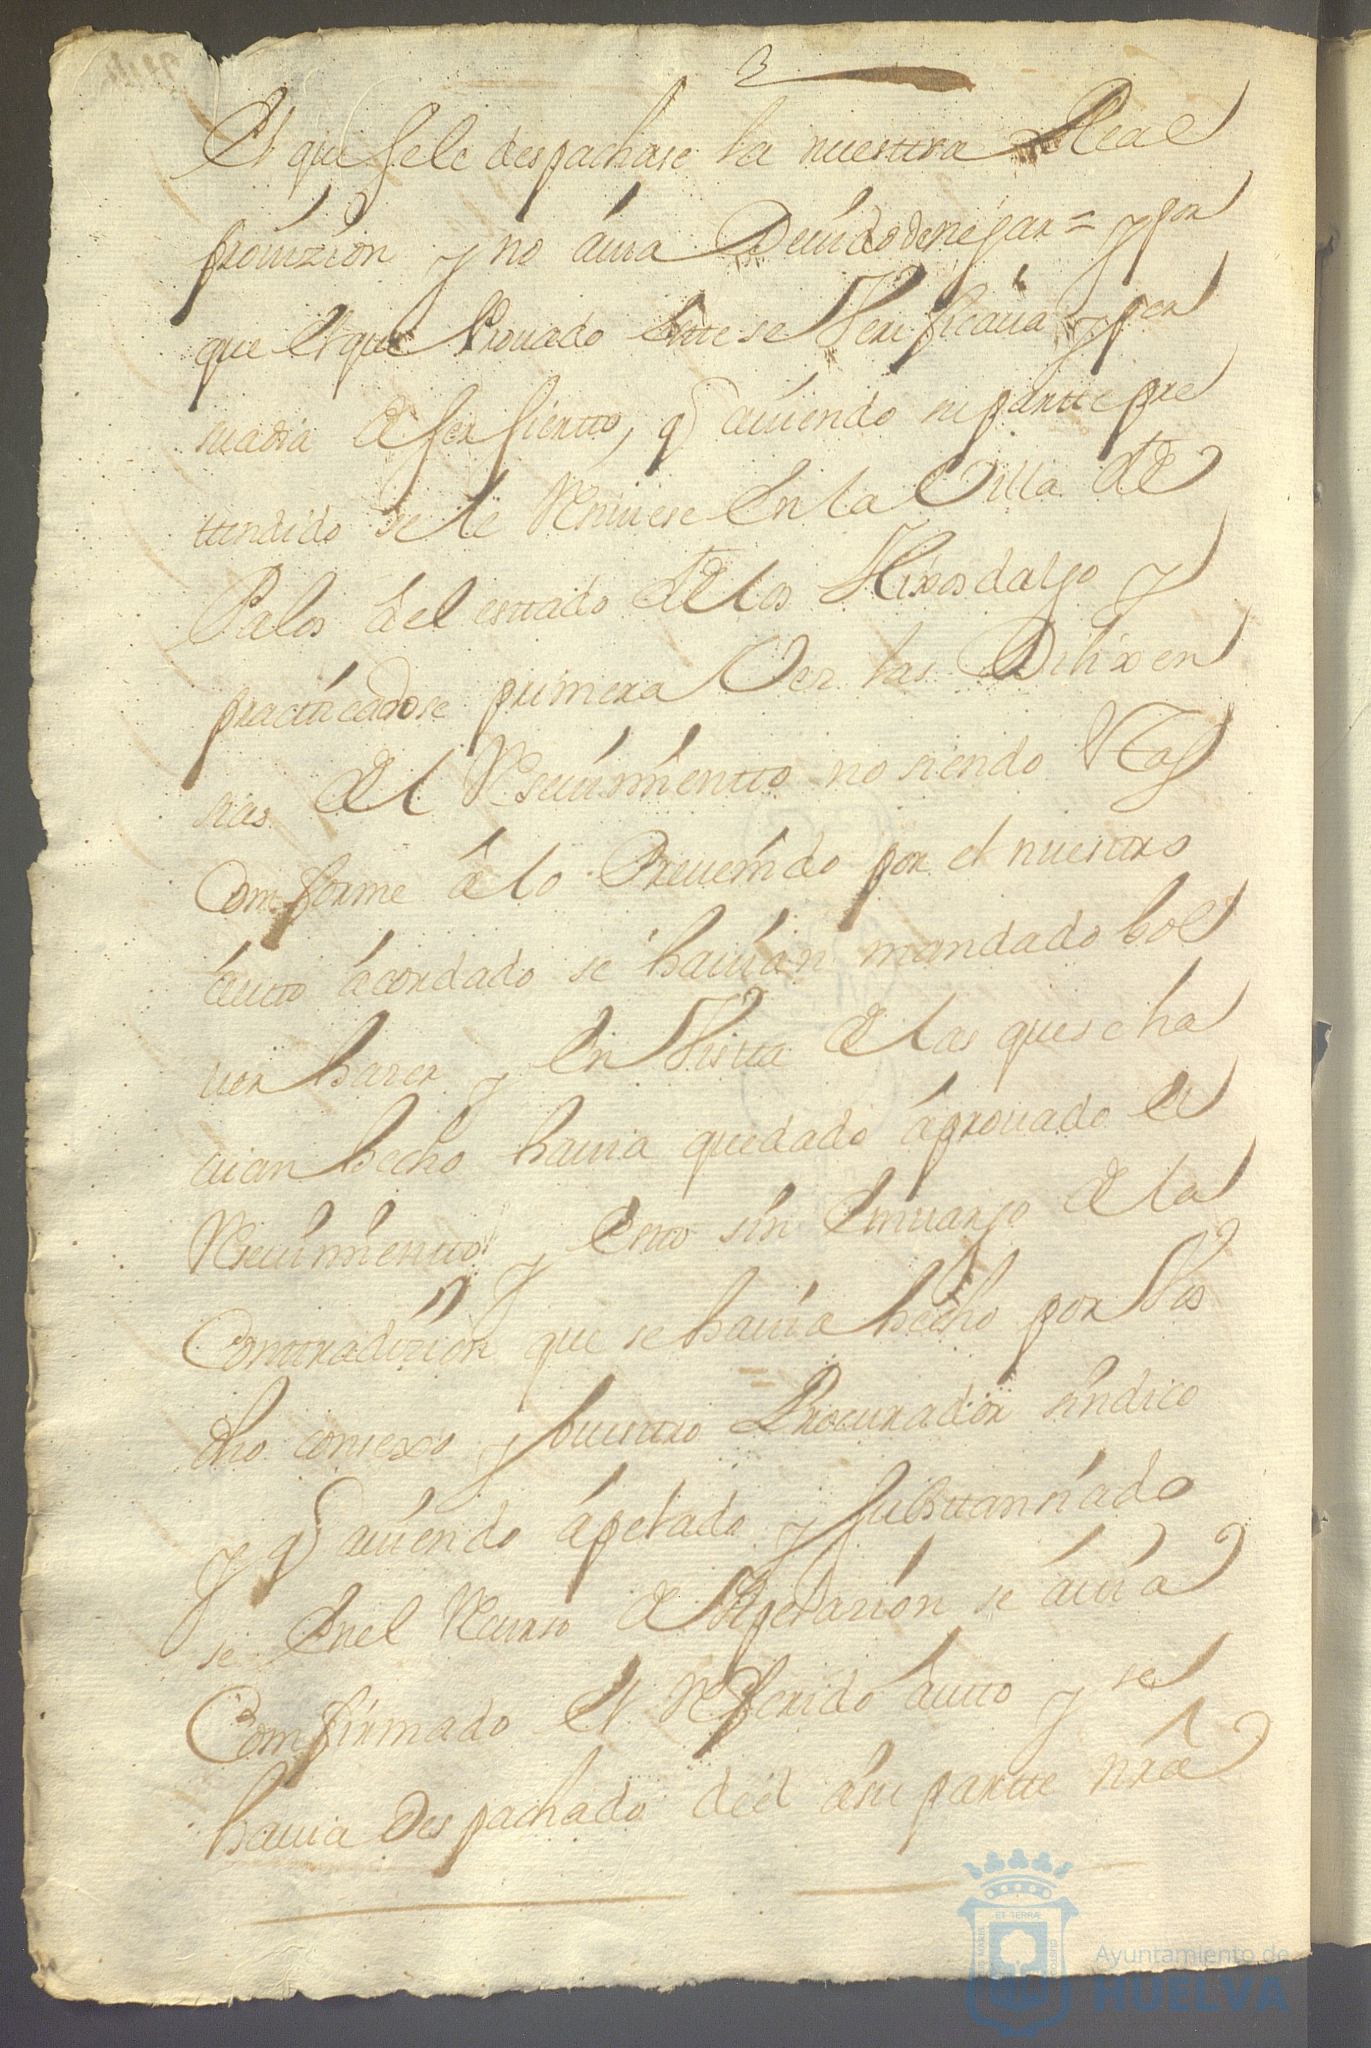 El que se le despachase la nuestra Real
prouizion y no auia Deuido denegar = y por
que el que Prouado Este se Verificaua y per
suadia de ser sientto, q auiendo su partte pre
ttendido se le Reciuiese En la Villa de
Palos del esttado de los Hixosdalgo y
practicadose primera Vez las Dilixen
sias del Resciuimientto no siendo Estas
Comforme â lo Preuenido por el nuestro
autto acordado se hauian mandado bol
uer hazer y En Vistta de las que se ha
uian hecho hauia quedado aprouado el
Resciuimientto y Estto sin Emuargo de la
Conttradizion que se hauia hecho por Vos
dho consexo y buesttro Procurador sindico
y q auiendo apelado y substtansiado
se En el Recurso de Apelazion se auia
Comfirmado el Referido autto y se
hauia Despachado del a su partte nrã
Ayuntamiento de
HUELVA